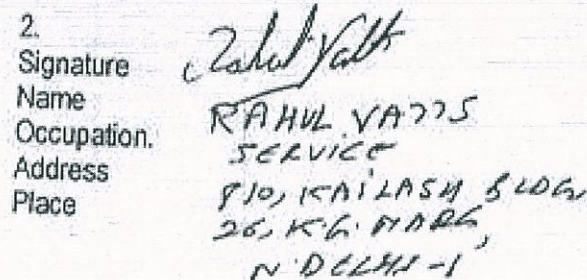 2.
Signature Rahul Vatts
Name RAHUL VATTS
Occupation. SERVICE
Address 810, KAILASH BLDG
Place 26, K.G. MARG,
N. DELHI-1